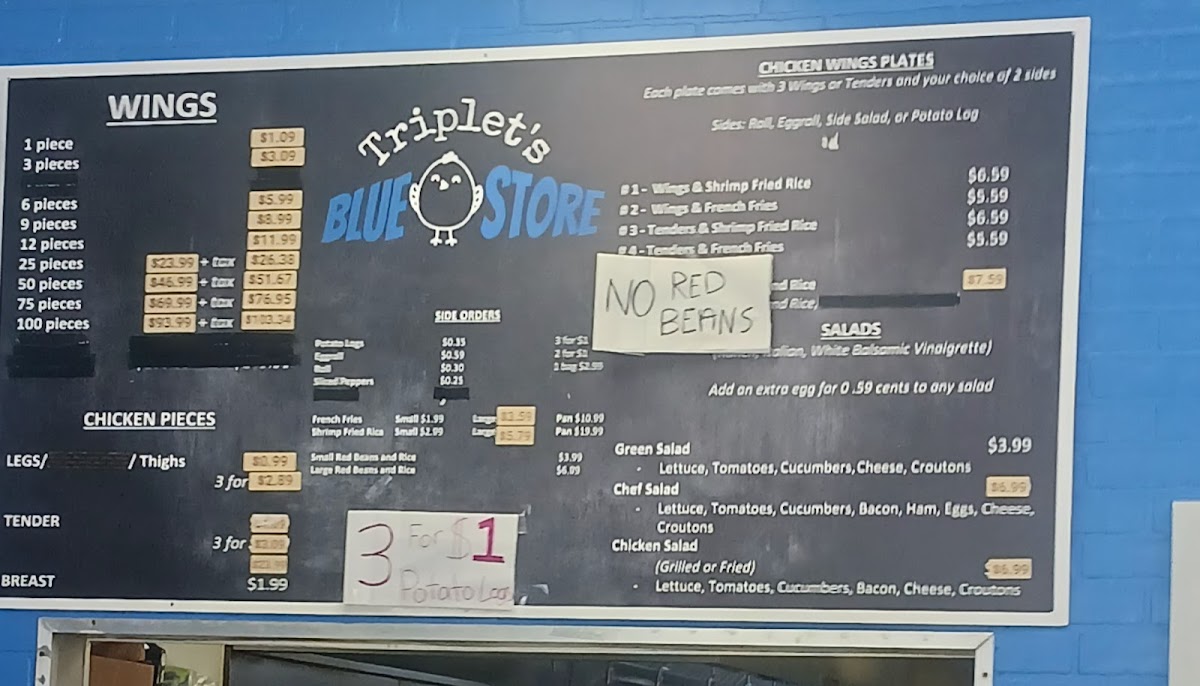 WINGS
1 piece $1.09
3 pieces $3.09
6 pieces $5.99
9 pieces $8.99
12 pieces $11.99
25 pieces $23.99 + tax $26.38
50 pieces $46.99 + tax $51.67
75 pieces $69.99 + tax $76.95
100 pieces $93.99 + tax $103.34
CHICKEN PIECES
LEGS/ / Thighs $0.99
3 for $2.89
TENDER
3 for $3.09
BREAST $1.99
Triplet's
BLUE STORE
SIDE ORDERS
Potato Logs $0.35 3 for $1
Eggroll $0.59 2 for $1
Roll $0.30 1 bag $2.99
Sliced Peppers $0.25
French Fries Small $1.99 Large $3.59 Pan $10.99
Shrimp Fried Rice Small $2.99 Large $5.79 Pan $19.99
Small Red Beans and Rice $3.99
Large Red Beans and Rice $6.09
3 For $1
Potato Logs
CHICKEN WINGS PLATES
Each plate comes with 3 Wings or Tenders and your choice of 2 sides
Sides: Roll, Eggroll, Side Salad, or Potato Log
#1 - Wings & Shrimp Fried Rice $6.59
#2 - Wings & French Fries $5.59
#3 - Tenders & Shrimp Fried Rice $6.59
#4 - Tenders & French Fries $5.59
Rice $7.59
Rice,
NO RED
BEANS
SALADS
Italian, White Balsamic Vinaigrette)
Add an extra egg for 0 .59 cents to any salad
Green Salad $3.99
- Lettuce, Tomatoes, Cucumbers, Cheese, Croutons
Chef Salad $6.99
- Lettuce, Tomatoes, Cucumbers, Bacon, Ham, Eggs, Cheese,
Croutons
Chicken Salad
(Grilled or Fried) $6.99
- Lettuce, Tomatoes, Cucumbers, Bacon, Cheese, Croutons